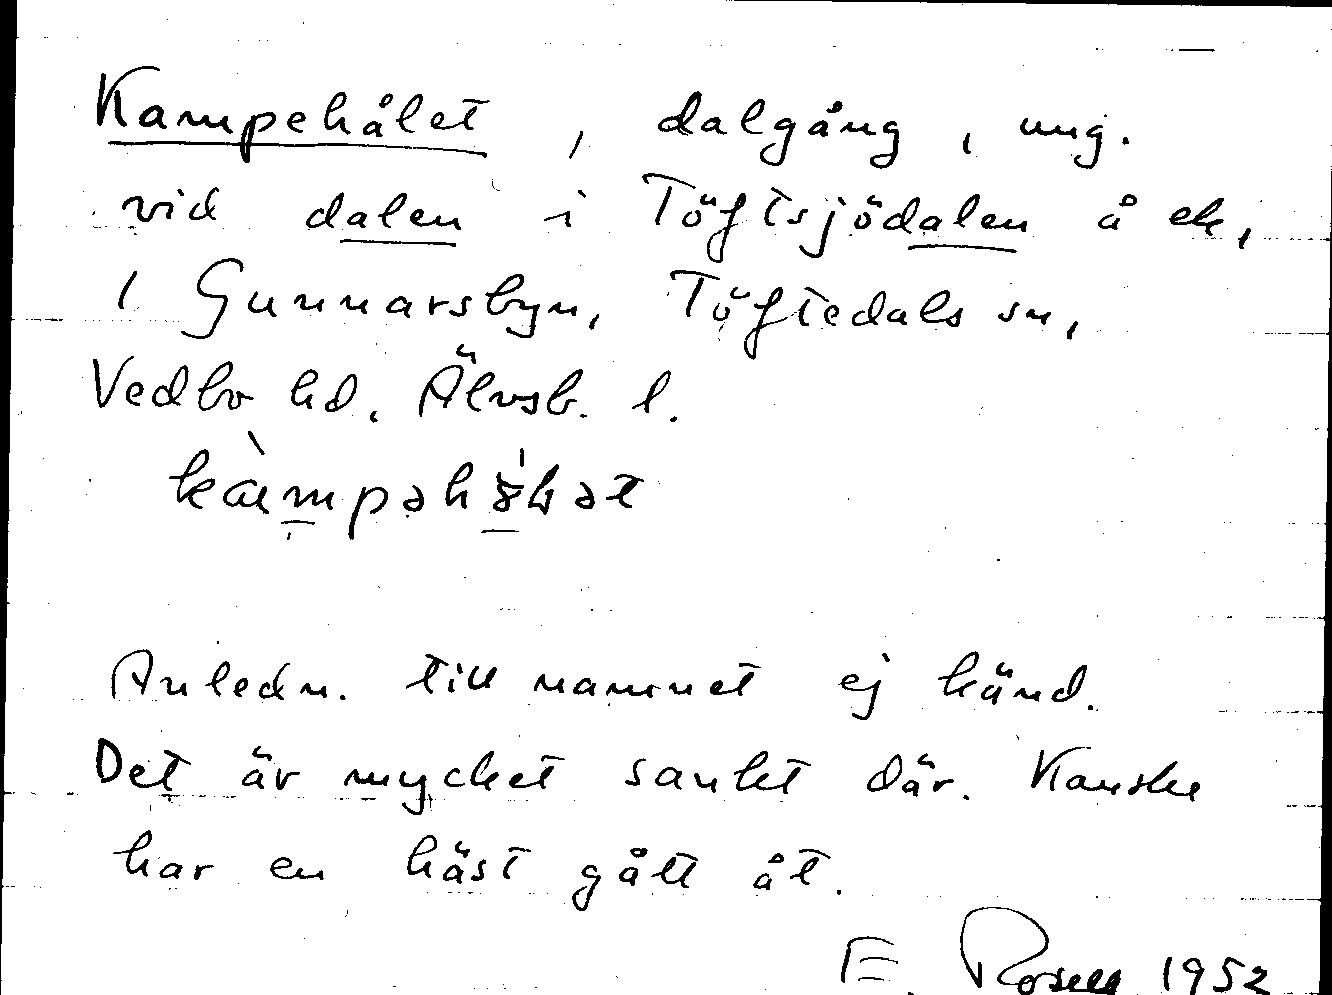 Kampehålet, dalgång, ung.
vid dalen i Töftsjödalen å ek,
i Gunnarsbyn, Töftedals sn,
Vedbo hd. Älvsb. l.
Anledn. till namnet ej känd.
Det är mycket sankt där. Kanske
har en häst gått åt.
E. Rosell 1952